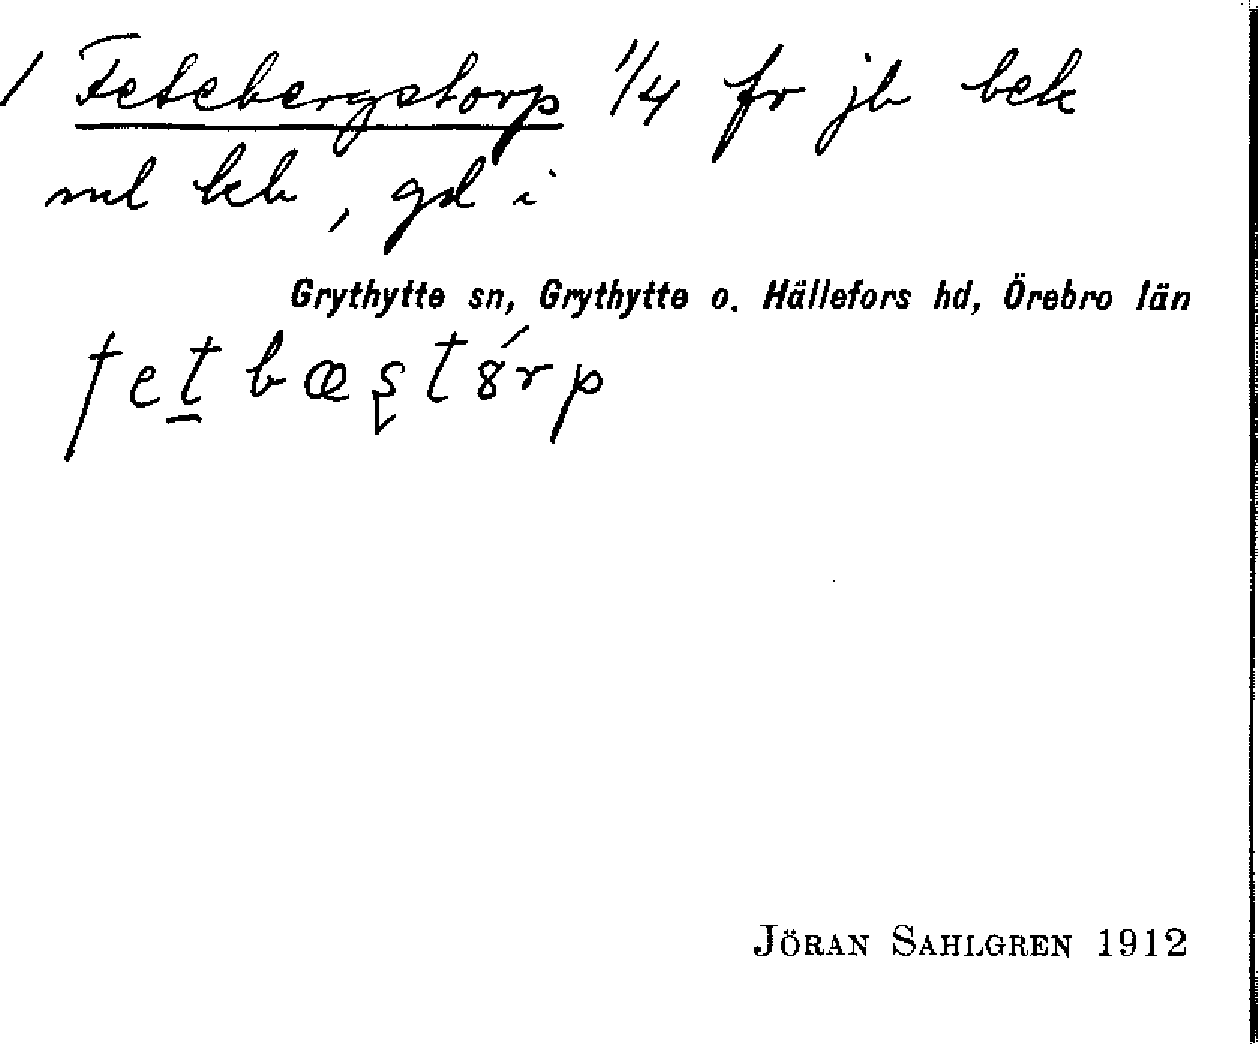 / Fetebergstorp 1/4 fr jb bek
ml kb, gd i
Grythytte sn, Grythytte o. Hällefors hd, Örebro län
fet̲bœʂt8́rp
JÖRAN SAHLGREN 1912